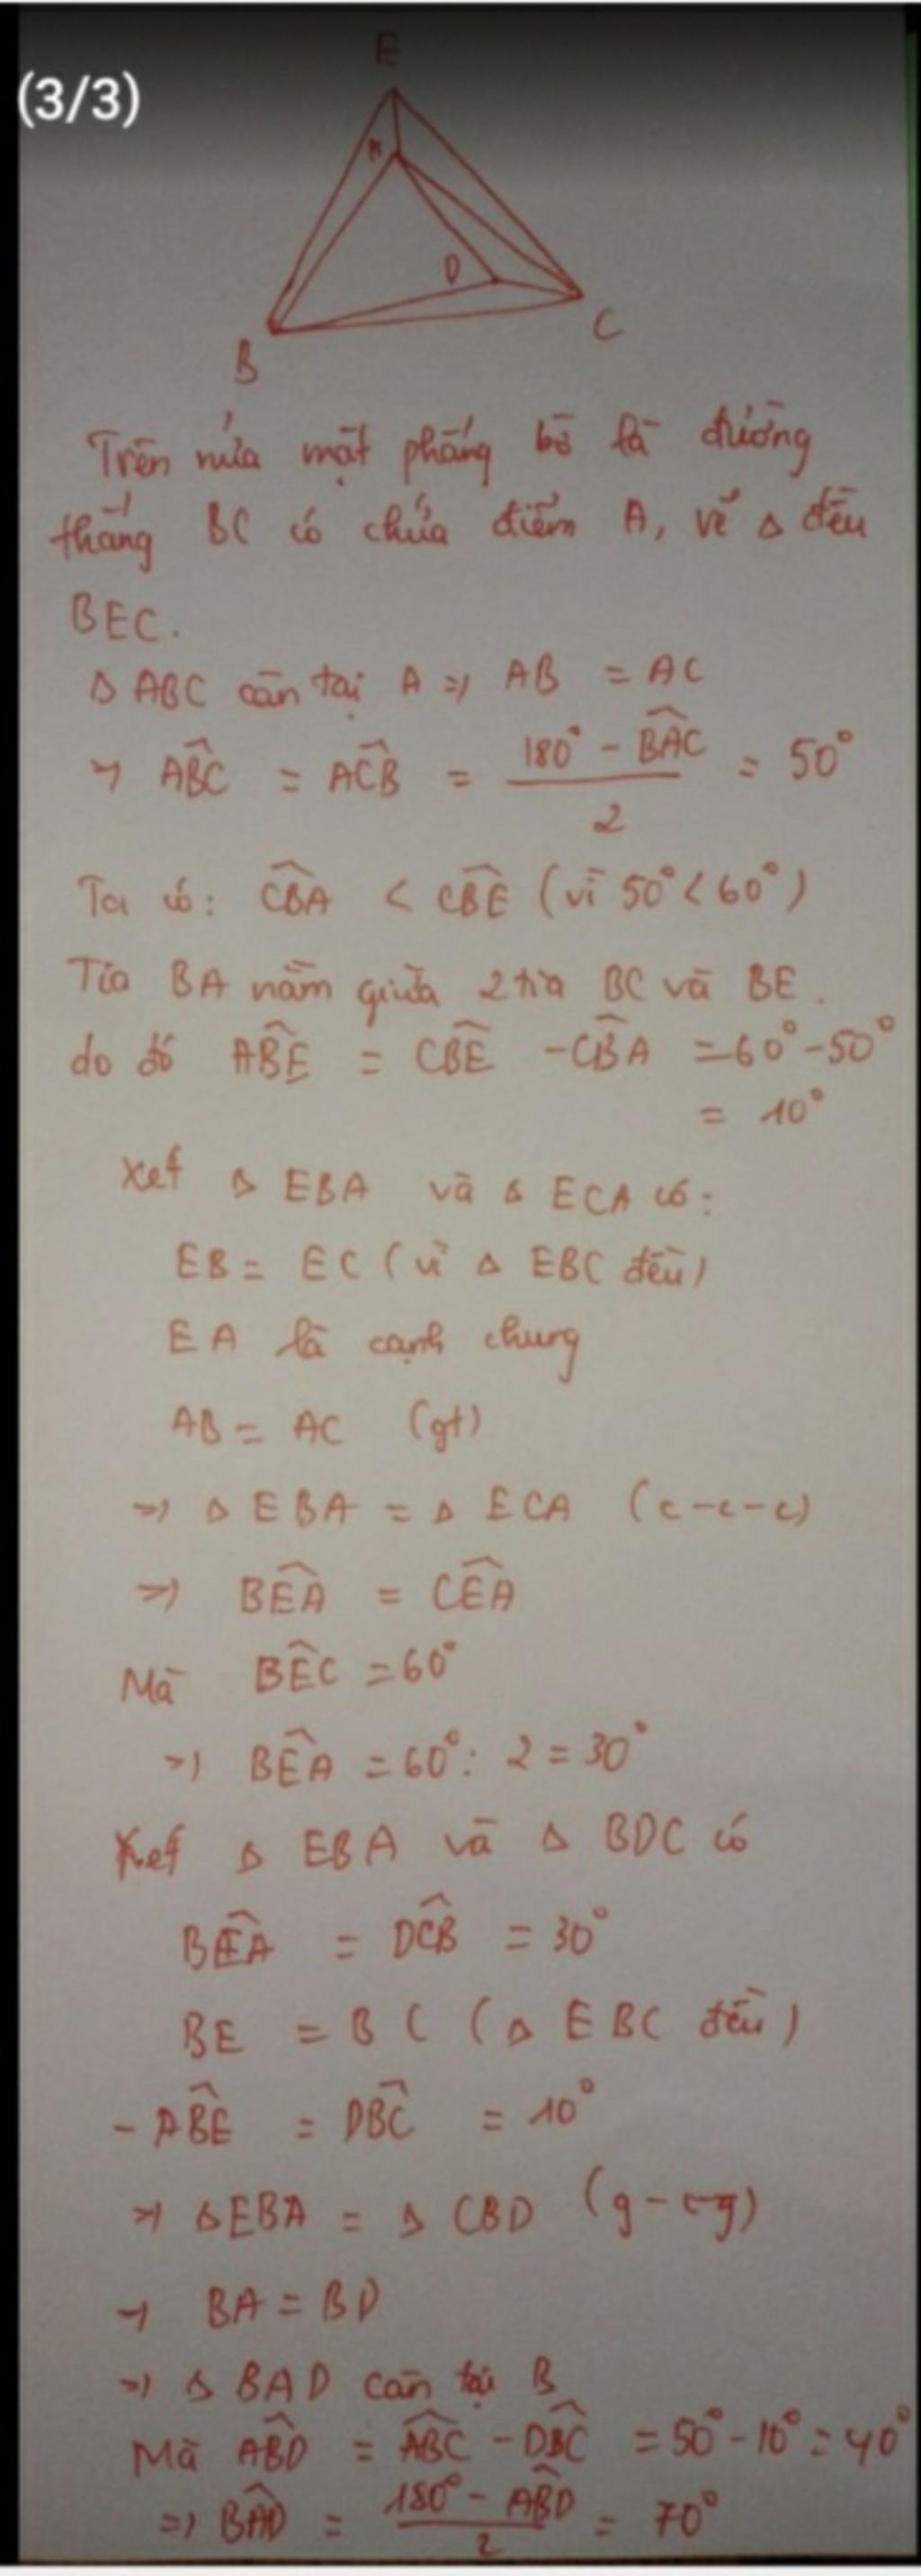 (3/3)
E
A
D
B
C
Trên nửa mặt phẳng bờ là đường
thẳng BC có chứa điểm A, vẽ Δ đều
BEC.
Δ ABC cân tại A => AB = AC
=> ABC^ = ACB^ = (180° - BAC^)/2 = 50°
Ta có: CBA^ < CBE^ (vì 50° < 60°)
Tia BA nằm giữa 2 tia BC và BE.
do đó ABE^ = CBE^ - CBA^ = 60° - 50°
= 10°
Xét Δ EBA và Δ ECA có:
EB = EC (vì Δ EBC đều)
EA là cạnh chung
AB = AC (gt)
=> Δ EBA = Δ ECA (c-c-c)
=> BEA^ = CEA^
Mà BEC^ = 60°
=> BEA^ = 60° : 2 = 30°
Xét Δ EBA và Δ BDC có
BEA^ = DCB^ = 30°
BE = BC (Δ EBC đều)
- ABE^ = DBC^ = 10°
=> Δ EBA = Δ CBD (g-c-g)
=> BA = BD
=> Δ BAD cân tại B
Mà ABD^ = ABC^ - DBC^ = 50° - 10° = 40°
=> BAD^ = (180° - ABD^)/2 = 70°